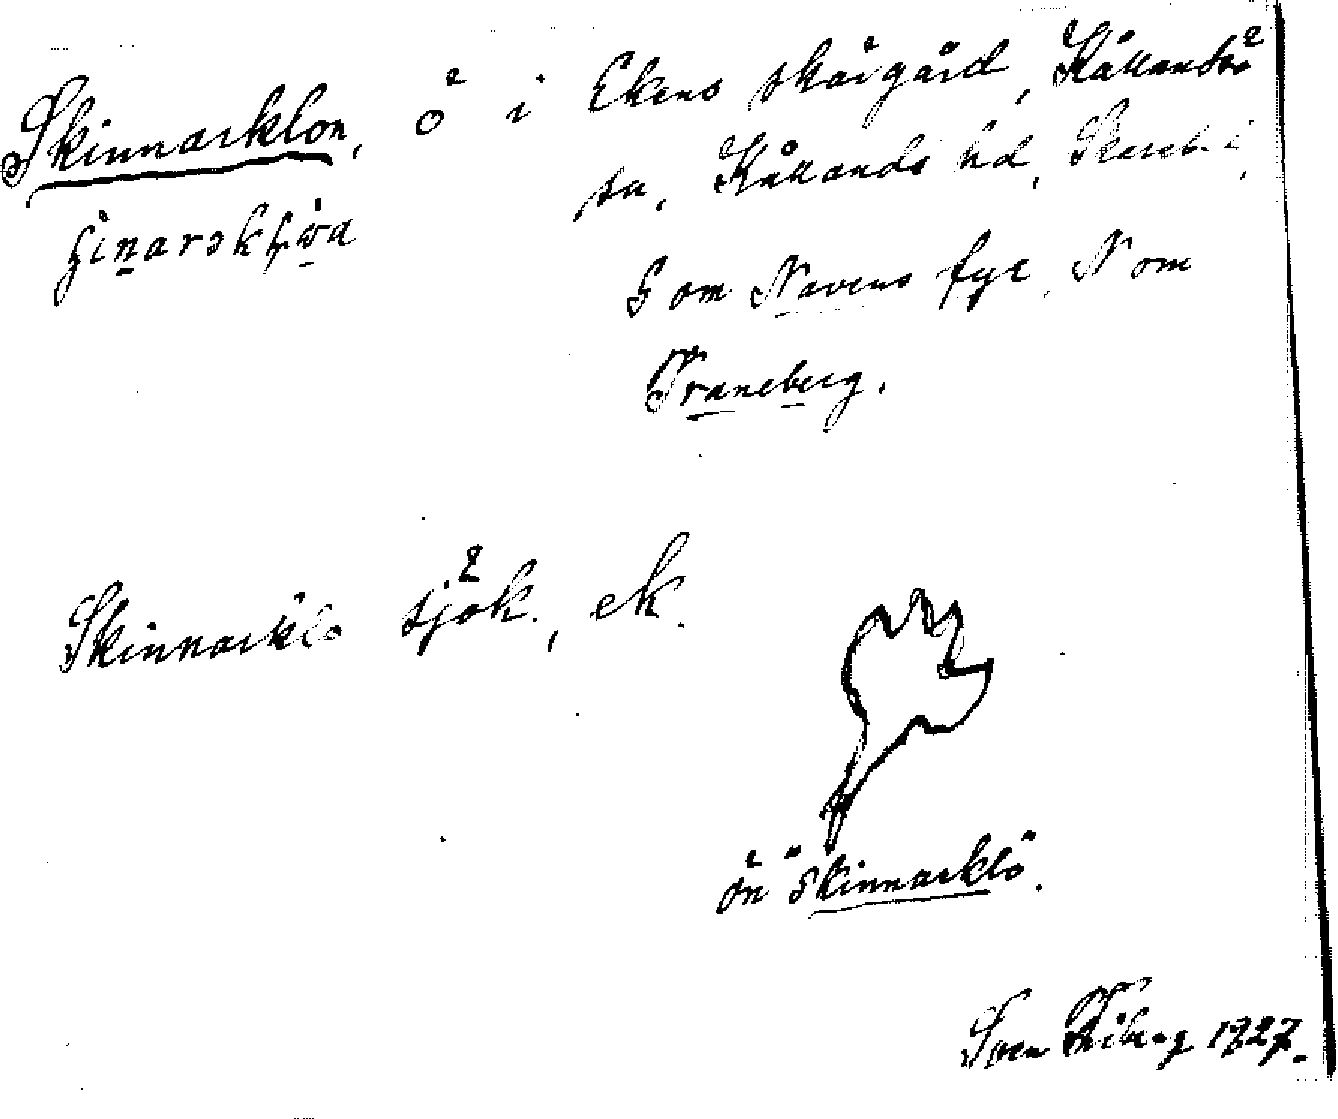 Skinnarklon, ö i Ekens skärgård, Kållandsö
sn, Kållands hd, Skarab. l.
S om Navens fyr, N om
Traneberg.
Skinnarklo sjök., ek.
ön "Skinnarklo".
Sven 1927.